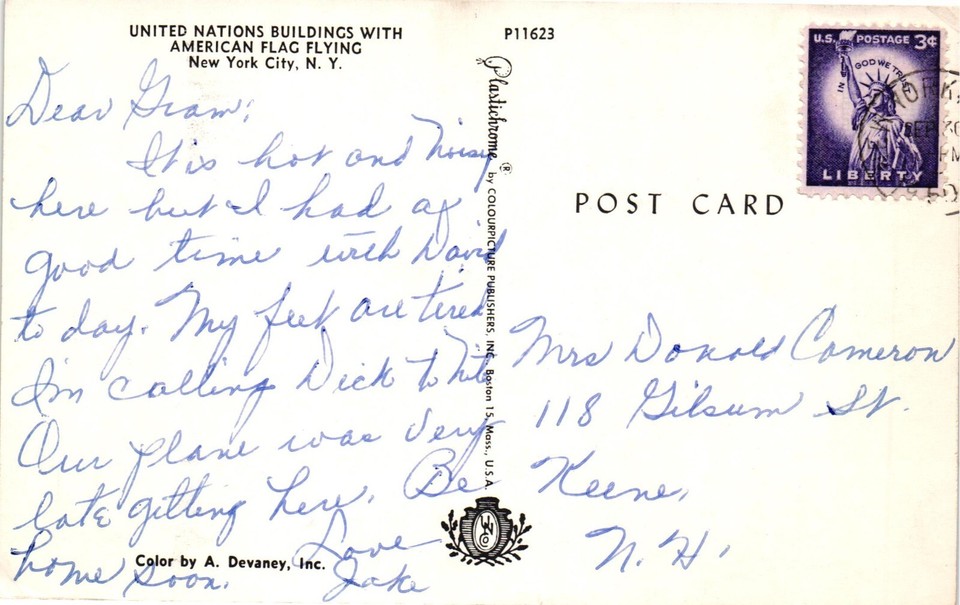 UNITED NATIONS BUILDINGS WITH
AMERICAN FLAG FLYING
New York City, N. Y.
P11623
Dear Gram:
It is hot and noisy
here but I had a
good time with David
to day. My feet are tired
I'm calling Dick to nite
Our plane was very
late gitting here. Be
home soon.
Love
Jake
Color by A. Devaney, Inc.
Plastichrome ® by COLOURPICTURE PUBLISHERS, INC. Boston 15, Mass., U.S.A.
POST CARD
U.S. POSTAGE 3¢
IN GOD WE TRUST
LIBERTY
SEP 30
PM
Mrs Donald Cameron
118 Gilsum St.
Keene,
N. H.